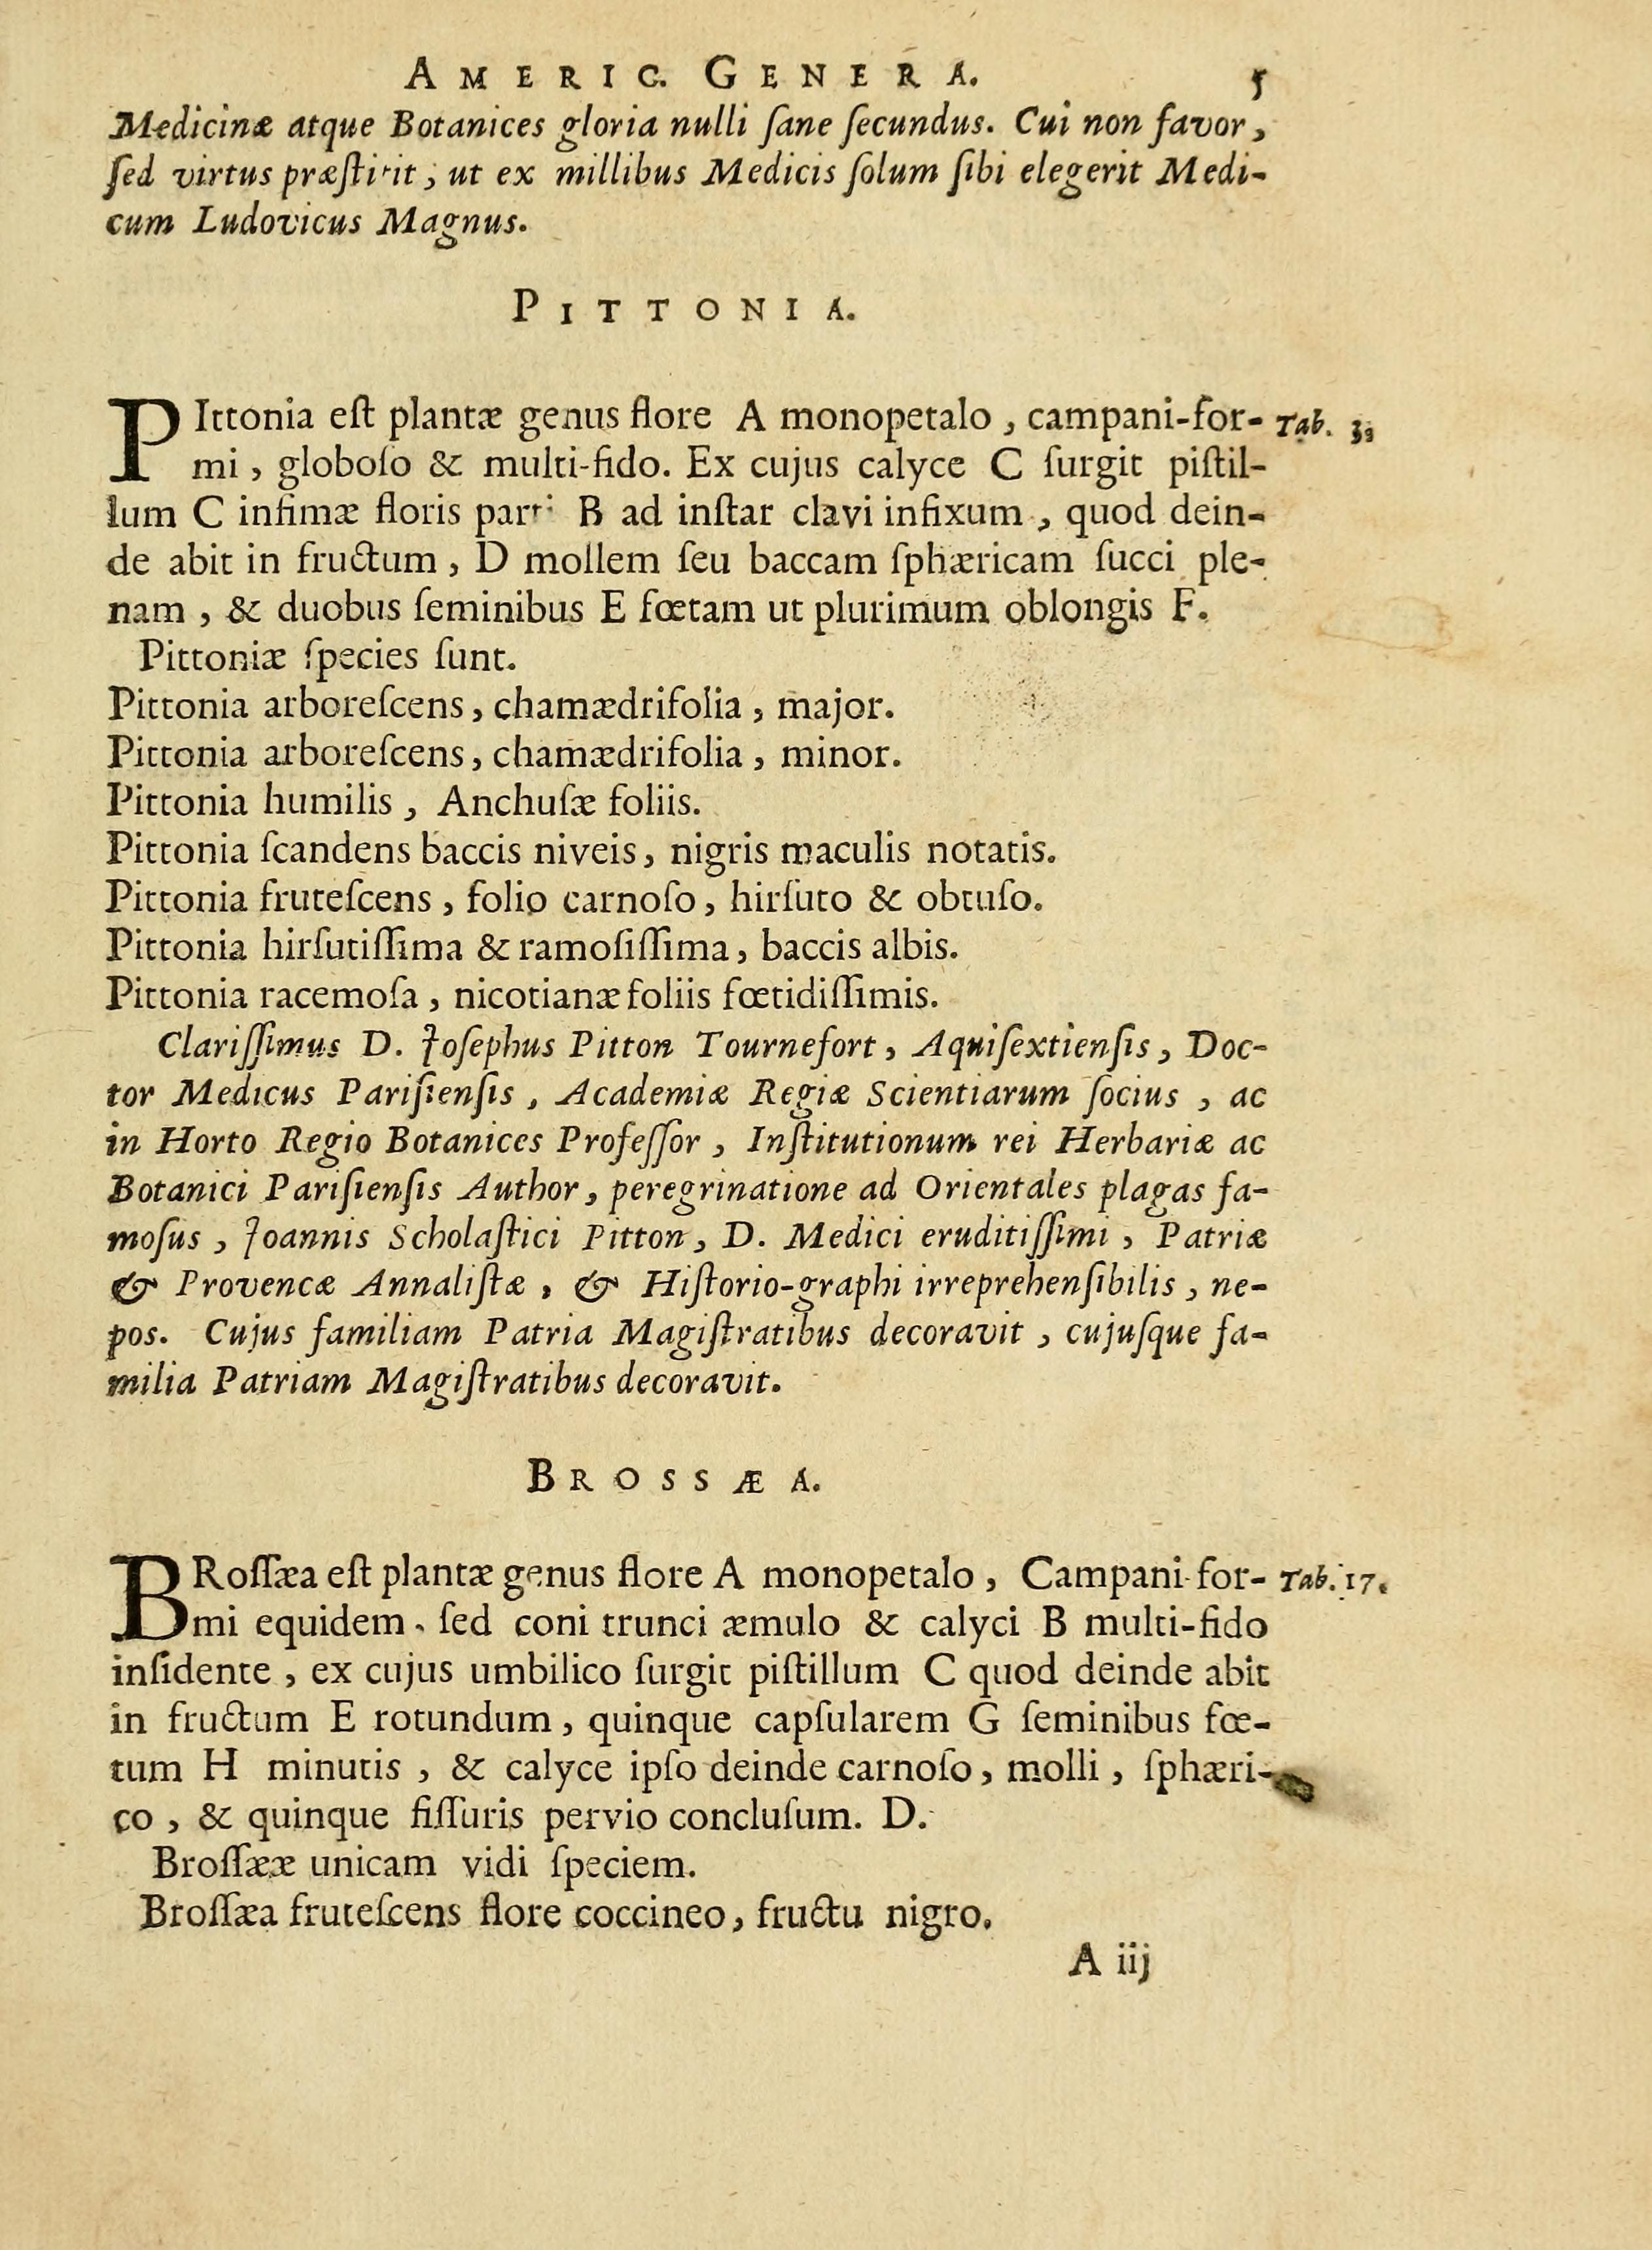 AMERIC. GENERA. 5
Medicinæ atque Botanices gloria nulli ſane ſecundus. Cui non favor,
ſed virtus præſtitit; ut ex millibus Medicis ſolum ſibi elegerit Medi-
cum Ludovicus Magnus.
PITTONIA.
PIttonia eſt plantæ genus flore A monopetalo, campani-for- Tab. 3,
mi, globoſo & multi-fido. Ex cujus calyce C ſurgit piſtil-
lum C infimæ floris parti B ad inſtar clavi infixum, quod dein-
de abit in fructum, D mollem ſeu baccam ſphæricam ſucci ple-
nam, & duobus ſeminibus E fœtam ut plurimum oblongis F.
Pittoniæ ſpecies ſunt.
Pittonia arboreſcens, chamædrifolia, major.
Pittonia arboreſcens, chamædrifolia, minor.
Pittonia humilis, Anchuſæ foliis.
Pittonia ſcandens baccis niveis, nigris maculis notatis.
Pittonia fruteſcens, folio carnoſo, hirſuto & obtuſo.
Pittonia hirſutiſſima & ramoſiſſima, baccis albis.
Pittonia racemoſa, nicotianæ foliis fœtidiſſimis.
Clariſſimus D. Joſephus Pitton Tournefort, Aquiſextienſis, Doc-
tor Medicus Pariſienſis, Academiæ Regiæ Scientiarum ſocius, ac
in Horto Regio Botanices Profeſſor, Inſtitutionum rei Herbariæ ac
Botanici Pariſienſis Author, peregrinatione ad Orientales plagas fa-
moſus, Joannis Scholaſtici Pitton, D. Medici eruditiſſimi, Patriæ
& Provencæ Annaliſtæ, & Hiſtorio-graphi irreprehenſibilis, ne-
pos. Cujus familiam Patria Magiſtratibus decoravit, cujuſque fa-
milia Patriam Magiſtratibus decoravit.
BROSSÆA.
BRoſſæa eſt plantæ genus flore A monopetalo, Campani-for- Tab. 17.
mi equidem, ſed coni trunci æmulo & calyci B multi-fido
inſidente, ex cujus umbilico ſurgit piſtillum C quod deinde abit
in fructum E rotundum, quinque capſularem G ſeminibus fœ-
tum H minutis, & calyce ipſo deinde carnoſo, molli, ſphæri-
co, & quinque fiſſuris pervio concluſum. D.
Broſſææ unicam vidi ſpeciem.
Broſſæa fruteſcens flore coccineo, fructu nigro.
A iij